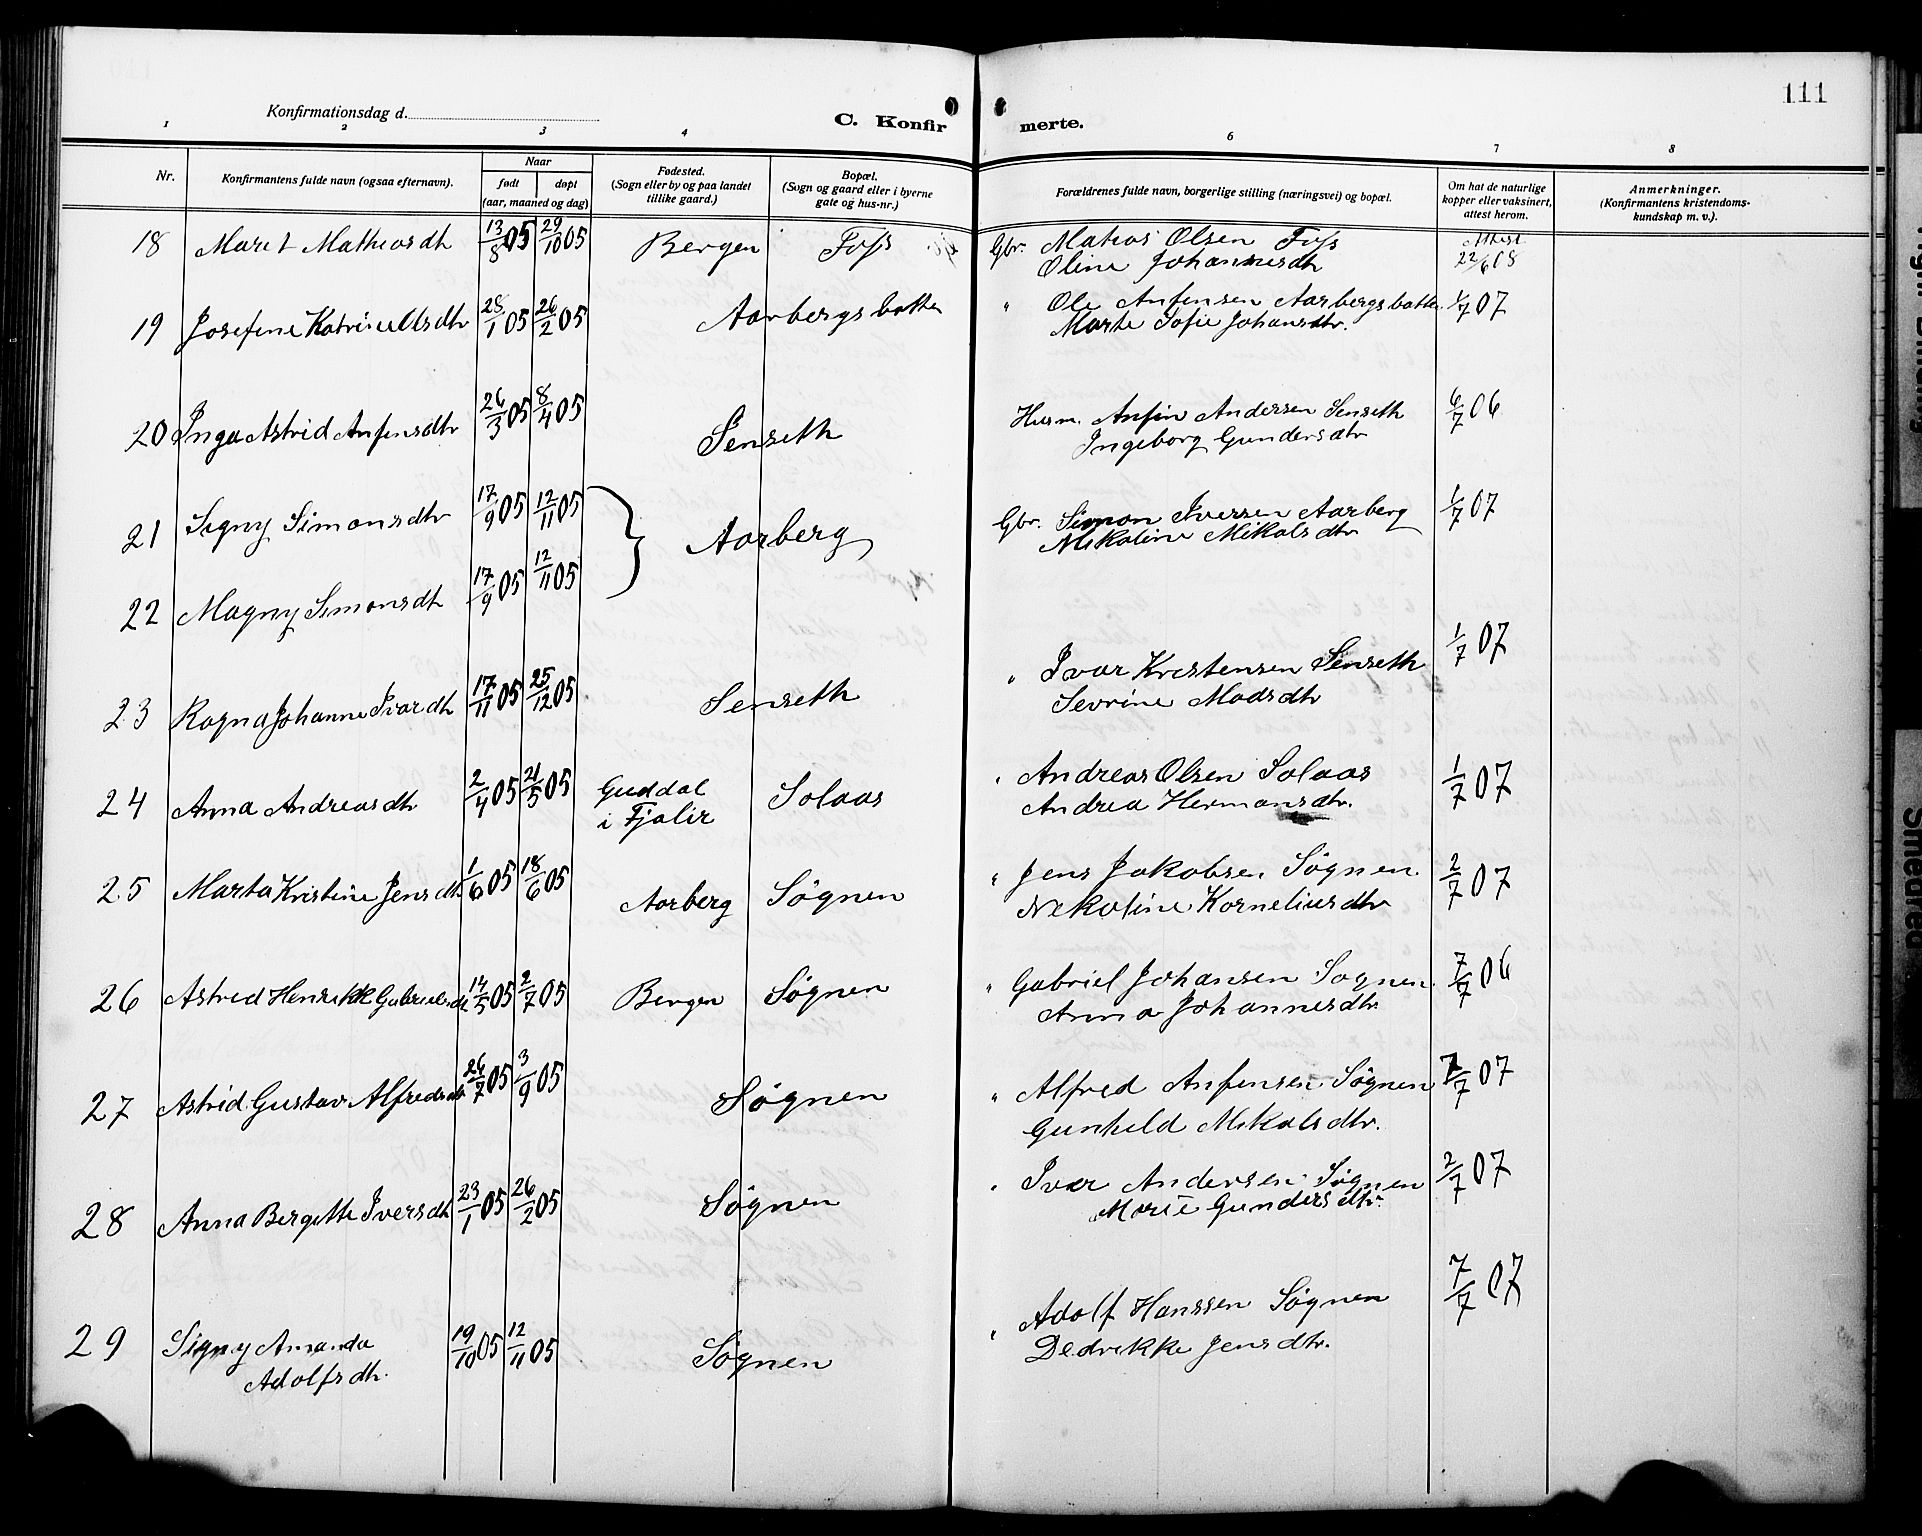 111
Konfirmationsdag d.
C. Konfir merte.
1 2 3 4 6 7 8
Nr. Konfirmantens fulde navn (ogsaa efternavn). Naar født døpt (aar, maaned og dag) Fødested. (Sogn eller by og paa landet tillike gaard.) Bopæl. (Sogn og gaard eller i byerne gate og hus-nr.) Forældrenes fulde navn, borgerlige stilling (næringsvei) og bopæl. Om hat de naturlige kopper eller vaksinert, attest herom. Anmerkninger. (Konfirmantens kristendoms-kundskap m. v.).
18 Marit Mathiasdtr 13/8 05 29/10 05 Bergen Foss Gbr. Matias Olsen Foss Attest
Oline Johannesdtr 22/6 08
19 Josefine Katrine Olsdtr 28/1 05 26/2 05 Aarbergsbotten " Ole Anfensen Aarbergsbotten 1/7 07
Marte Sofie Johansdtr.
20 Inga Astrid Anfensdtr 26/3 05 8/4 05 Senseth Husm. Anfin Andersen Senseth 6/7 06
Ingeborg Gundersdtr
21 Signy Simonsdtr 17/9 05 12/11 05 } Aarberg Gbr. Simon Iversen Aarberg 1/7 07
Nikoline Mikalsdtr
22 Magny Simonsdtr 17/9 05 12/11 05
23 Ragna Johanne Ivardtr 17/11 05 25/12 05 Senseth " Ivar Kristensen Senseth 1/7 07
Sevrine Madsdtr
24 Anna Andreasdtr 2/4 05 21/5 05 Guddal i Fjalir Solaas " Andreas Olsen Solaas 1/7 07
Andrea Hermansdtr.
25 Marta Kristine Jensdtr 1/6 05 18/6 05 Aarberg Søgnen " Jens Jakobsen Søgnen 2/7 07
Nikoline Korneliusdtr
26 Astrid Henrikke Gabrielsdtr 14/5 05 2/7 05 Bergen Søgnen " Gabriel Johansen Søgnen 7/7 06
Anna Johannesdtr
27 Astrid Gustav. Alfredsdtr 26/7 05 3/9 05 Søgnen " Alfred Anfensen Søgnen 7/7 07
Gunhild Mikalsdtr.
28 Anna Bergitte Iversdtr 23/1 05 26/2 05 Søgnen " Ivar Andersen Søgnen 2/7 07
Marie Gundersdtr.
29 Signy Amanda 19/10 05 12/11 05 Søgnen " Adolf Hanssen Søgnen 7/7 07
Adolfsdtr. Dedrikke Jensdtr.